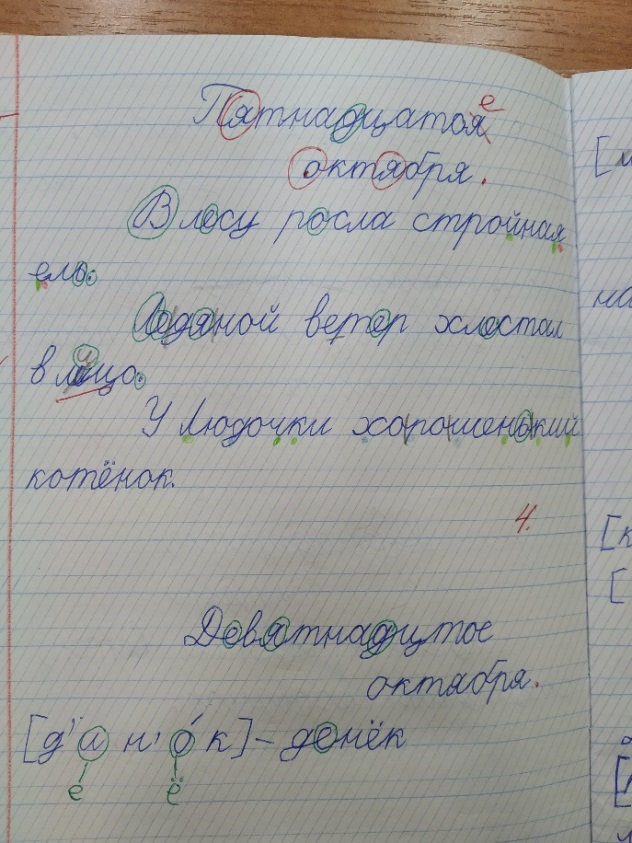 Пятнадцатоя е
октября.
В лесу росла стройная
ель.
Ледяной ветер хлестал
в лицо.
У Людочки хорошенький
котёнок.
4.
Девятнадцтое
октября.
[д' и н' о́ к] – денёк
е ё